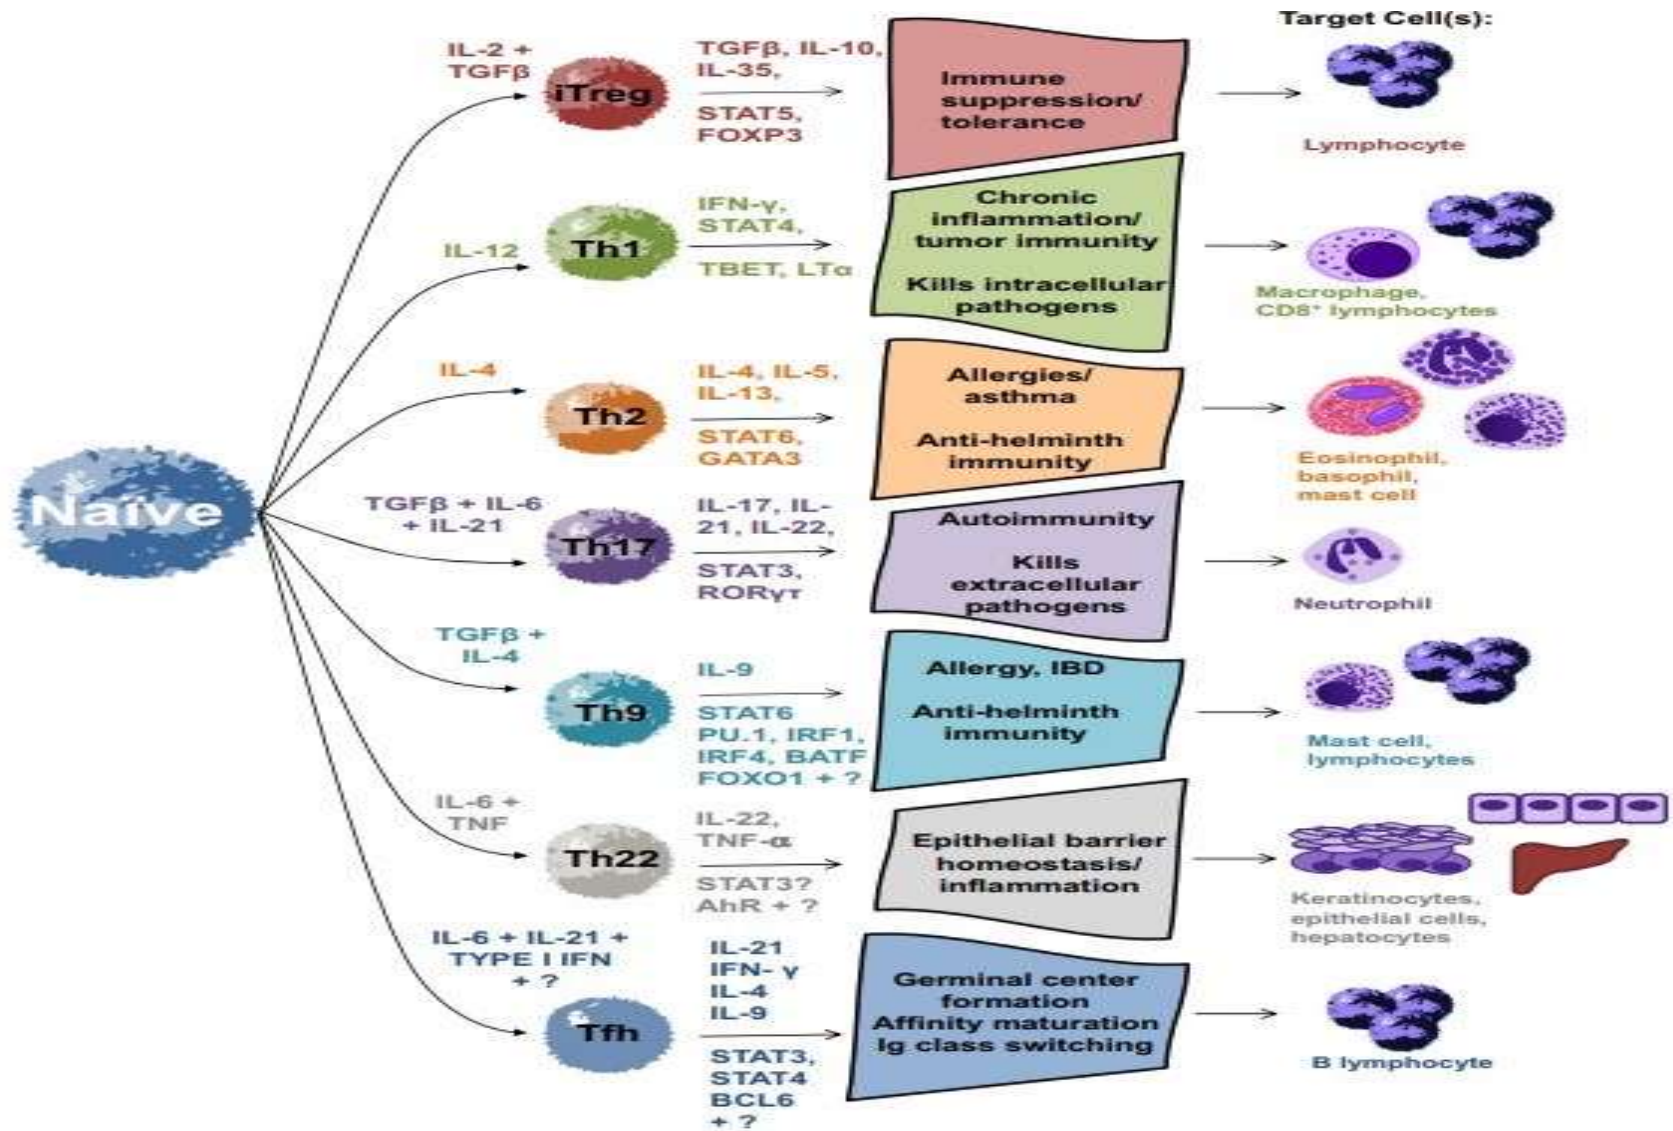 Target Cell(s):
IL-2 +
TGFβ
iTreg
TGFβ, IL-10,
IL-35,
STAT5,
FOXP3
Immune
suppression/
tolerance
Lymphocyte
IL-12
Th1
IFN-γ,
STAT4,
TBET, LTα
Chronic
inflammation/
tumor immunity
Kills intracellular
pathogens
Macrophage,
CD8⁺ lymphocytes
IL-4
Th2
IL-4, IL-5,
IL-13,
STAT6,
GATA3
Allergies/
asthma
Anti-helminth
immunity
Eosinophil,
basophil,
mast cell
Naïve
TGFβ + IL-6
+ IL-21
Th17
IL-17, IL-
21, IL-22,
STAT3,
RORγτ
Autoimmunity
Kills
extracellular
pathogens
Neutrophil
TGFβ +
IL-4
Th9
IL-9
STAT6
PU.1, IRF1,
IRF4, BATF
FOXO1 + ?
Allergy, IBD
Anti-helminth
immunity
Mast cell,
lymphocytes
IL-6 +
TNF
Th22
IL-22,
TNF-α
STAT3?
AhR + ?
Epithelial barrier
homeostasis/
inflammation
Keratinocytes,
epithelial cells,
hepatocytes
IL-6 + IL-21 +
TYPE I IFN
+ ?
Tfh
IL-21
IFN- γ
IL-4
IL-9
STAT3,
STAT4
BCL6
+ ?
Germinal center
formation
Affinity maturation
Ig class switching
B lymphocyte